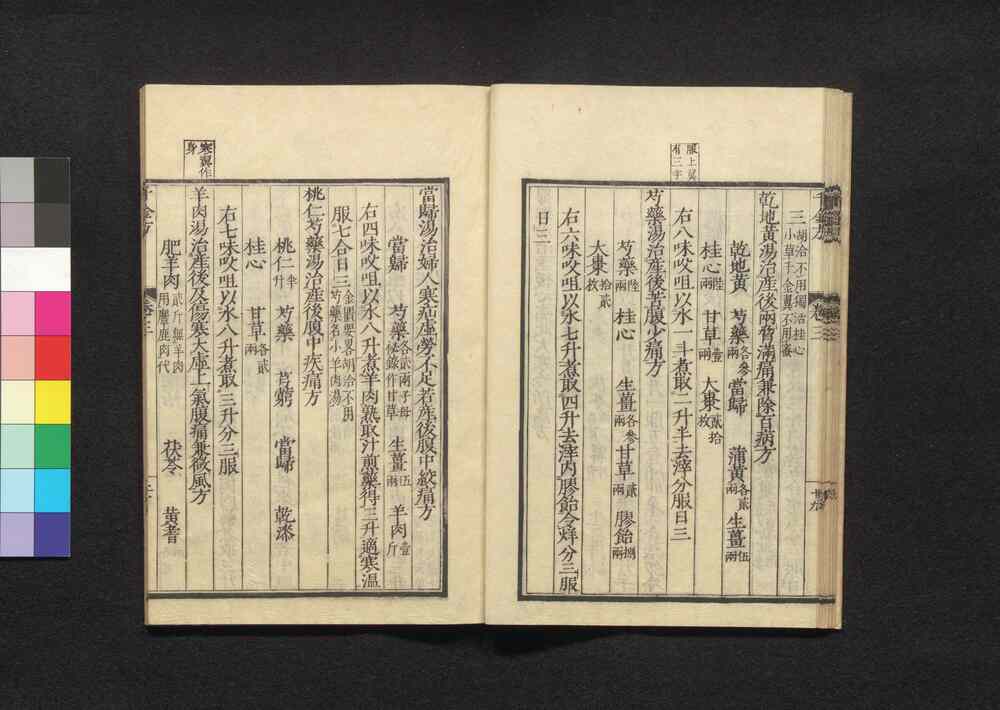 服上冀
有三字
三 胡洽不用獨活桂心
小草千金翼不用蜜
乾地黃湯治產後兩脅滿痛兼除百病方
乾地黃 芍藥各參兩 當歸 蒲黃各貳兩 生薑伍兩
桂心陸兩 甘草壹兩 大棗貳拾枚
右八味㕮咀以水一斗煮取二升半去滓分服日三
芍藥湯治產後苦腹少痛方
芍藥陸兩 桂心 生薑各參兩 甘草貳兩 膠飴捌兩
大棗拾貳枚
右六味㕮咀以水七升煮取四升去滓內膠飴令烊分三服
日三
當歸湯治婦人寒疝虛勞不足若產後腹中絞痛方
當歸 芍藥各貳兩子母秘錄作甘草 生薑伍兩 羊肉壹斤
右四味㕮咀以水八升煮羊肉熟取汁煎藥得三升適寒溫
服七合日三 金匱要畧胡洽不用芍藥名小羊肉湯
桃仁芍藥湯治產後腹中疾痛方
桃仁半升 芍藥 芎藭 當歸 乾漆
桂心 甘草各貳兩
右七味㕮咀以水八升煮取三升分三服
寒翼作
身
羊肉湯治產後及傷寒大虛上氣腹痛兼微風方
肥羊肉貳斤無羊肉用麞鹿肉代 茯苓 黃耆
卷三